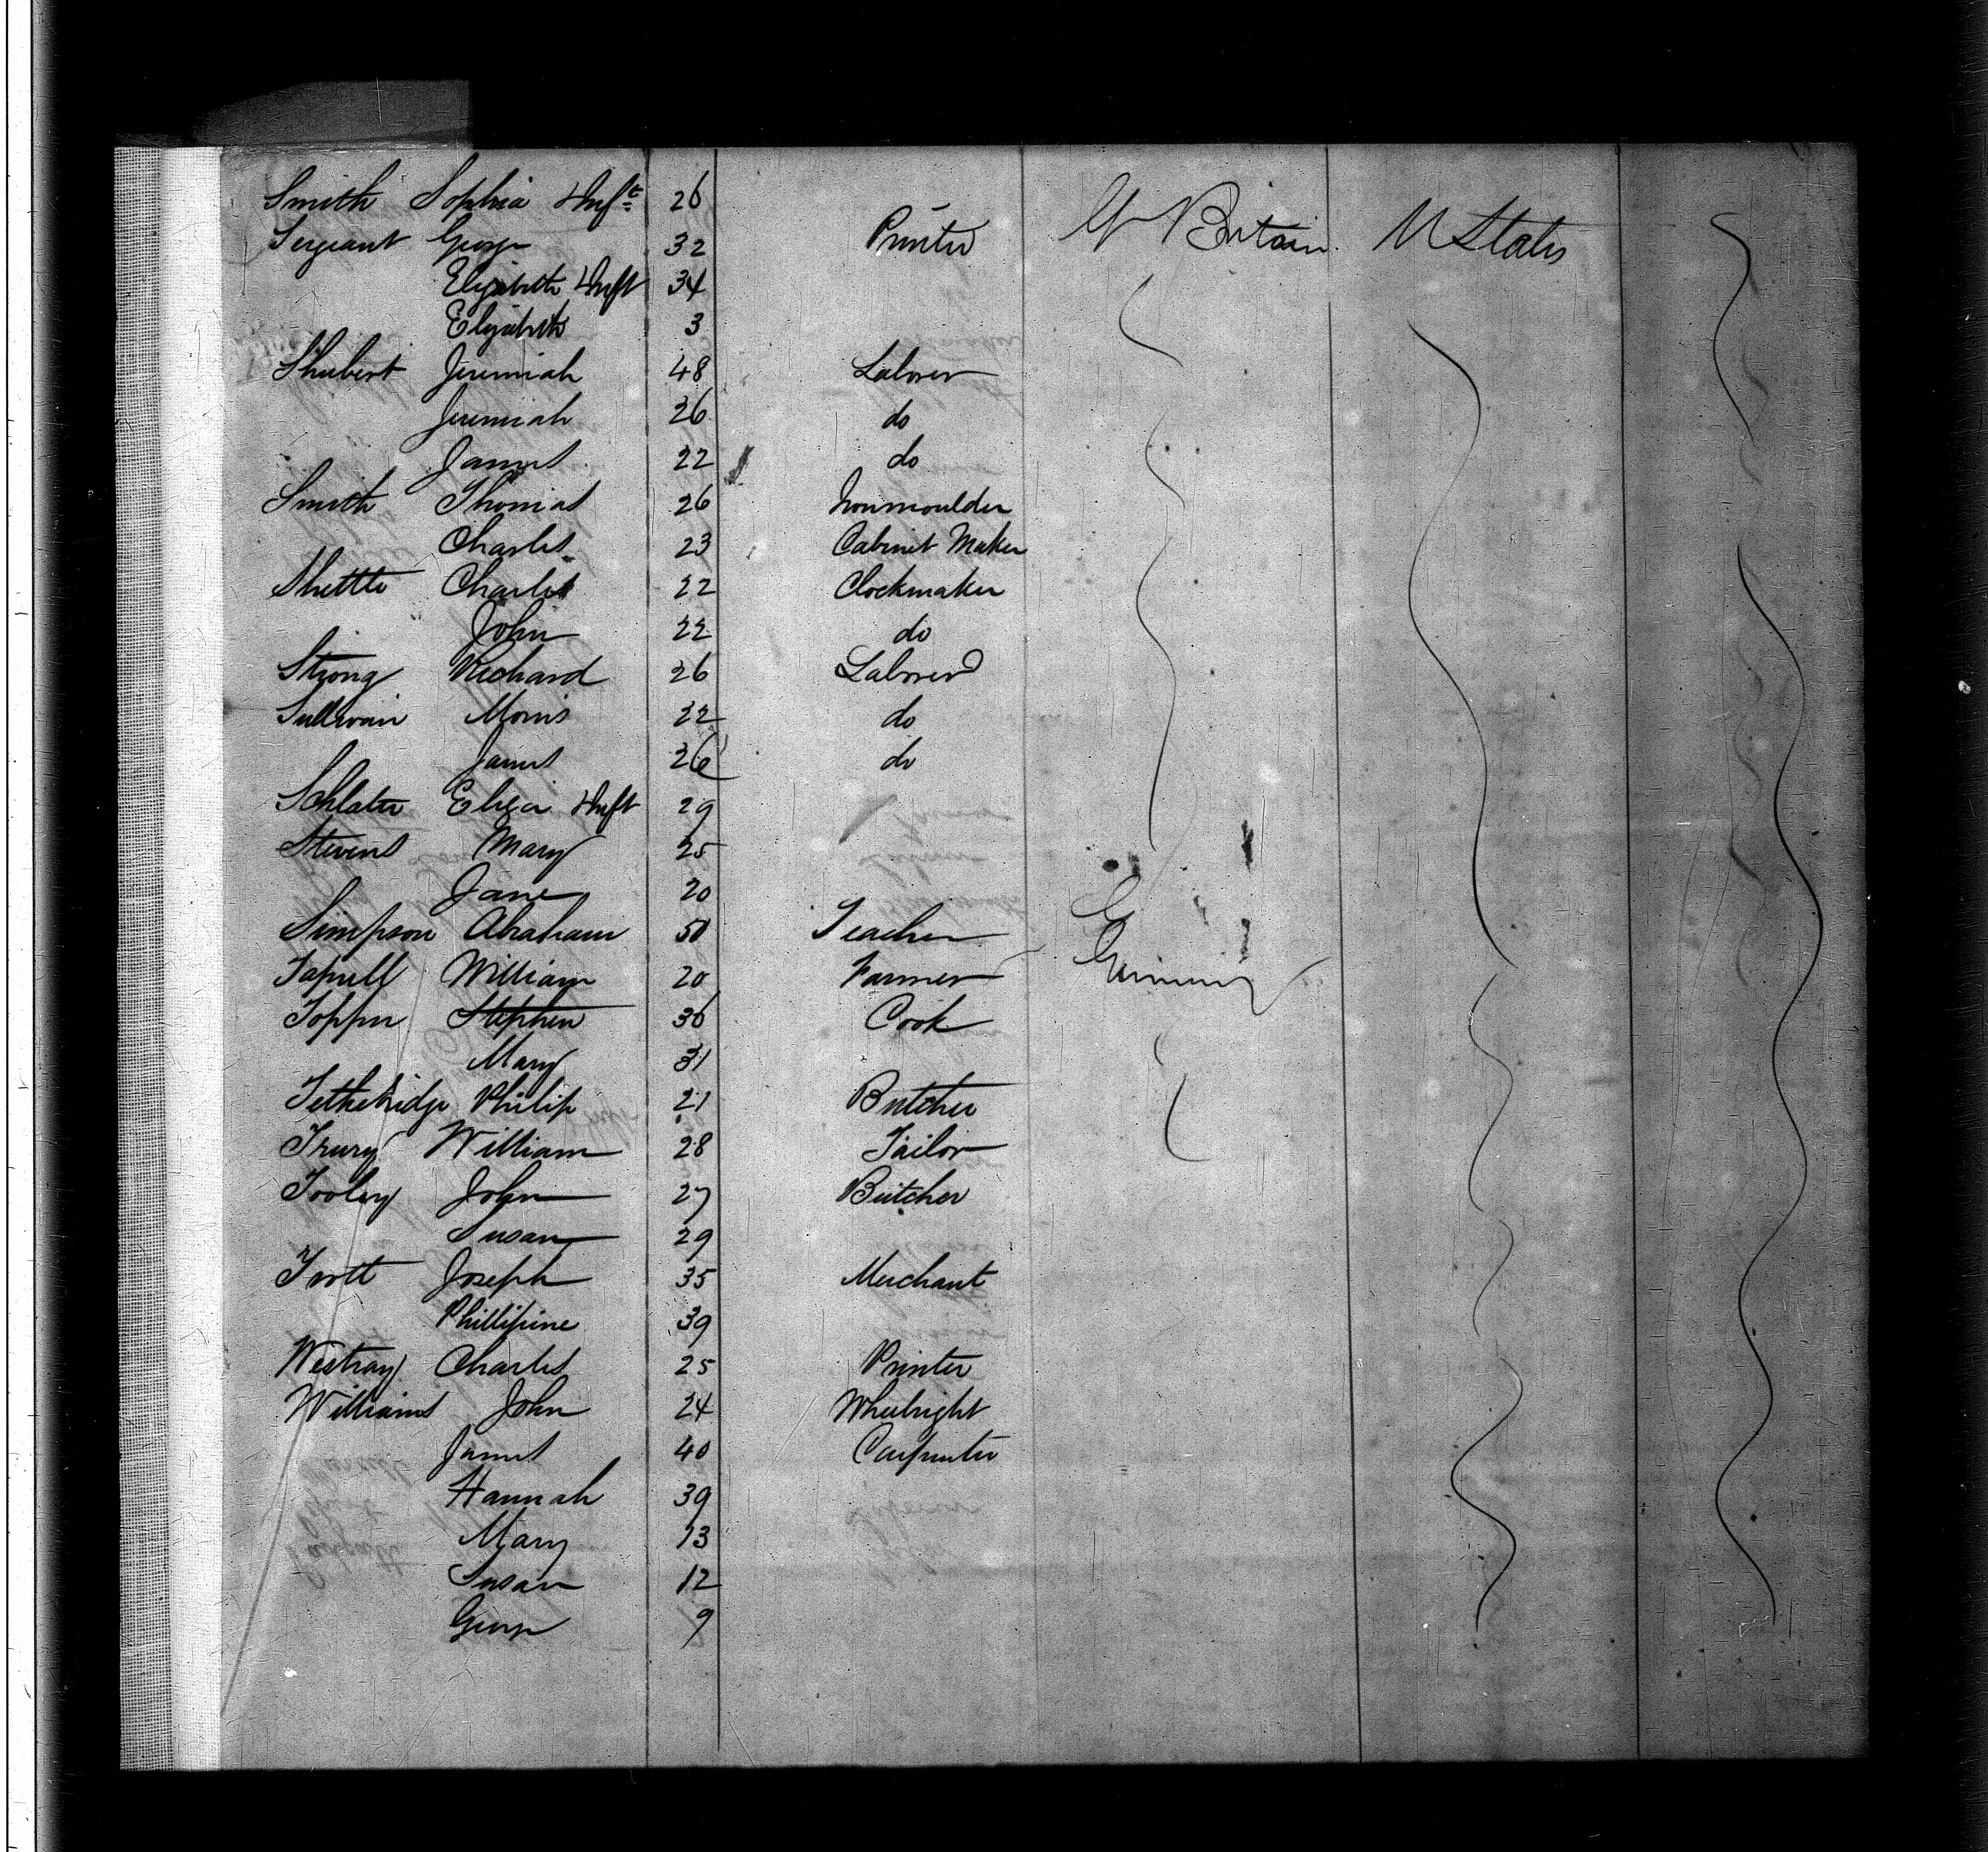 Smith Sophia & Inft 26
Sergeant George 32 Printer Gr Britain U States
Elizabeth & Inft 34
Elizabeth 3
Shubert Jeremiah 48 Laborer
Jeremiah 26 do
James 22 do
Smith Thomas 26 Ironmoulder
Charles 23 Cabinet Maker
Shettle Charles 22 Clockmaker
John 22 do
Strong Richard 26 Laborer
Sullivan Morris 22 do
James 26 do
Schlater Eliza & Inft 29
Stevens Mary 25
Jane 20
Simpson Abraham 50 Teacher
William 20 Farmer Germany
Topper Stephen 36 Cook
Mary 31
Tetheridge Philip 21 Butcher
William 28 Tailor
Tooley John 27 Butcher
Susan 29
Trott Joseph 35 Merchant
Phillipine 39
Westray Charles 25 Printer
Williams John 24 Wheelright
James 40 Carpenter
Hannah 39
Mary 13
Susan 12
George 9